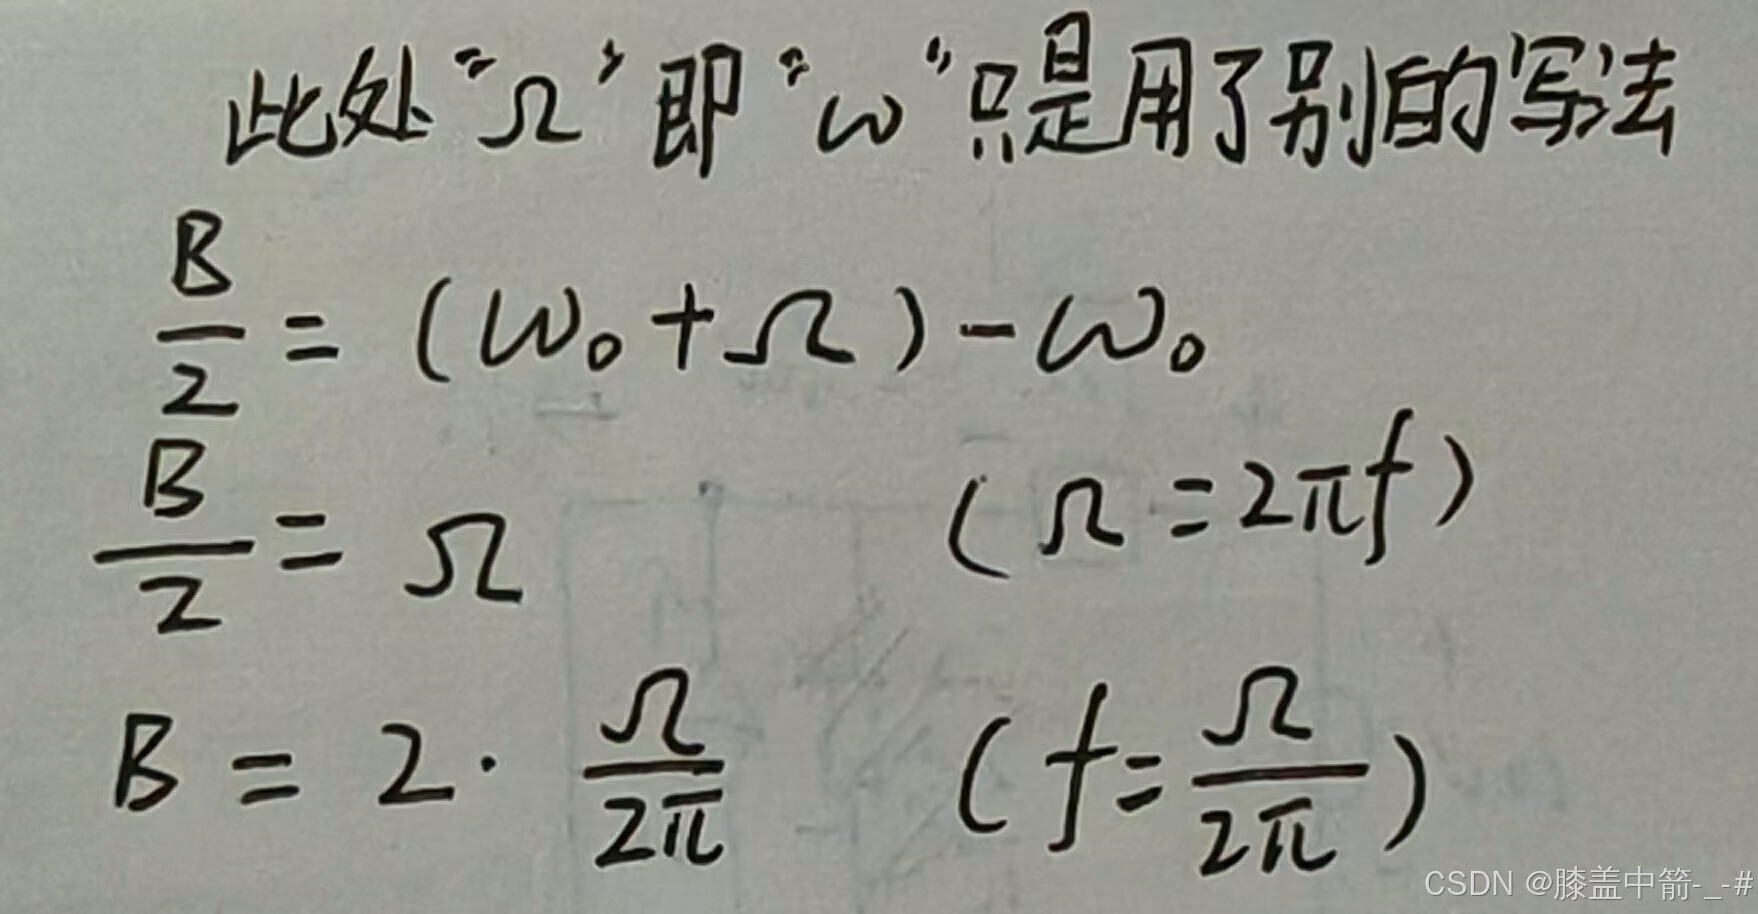 此处“Ω”即“ω”只是用了别的写法
B/2 = (ω₀+Ω)-ω₀
B/2 = Ω (Ω=2πf)
B = 2· Ω/2π (f=Ω/2π)
CSDN @膝盖中箭-_-#